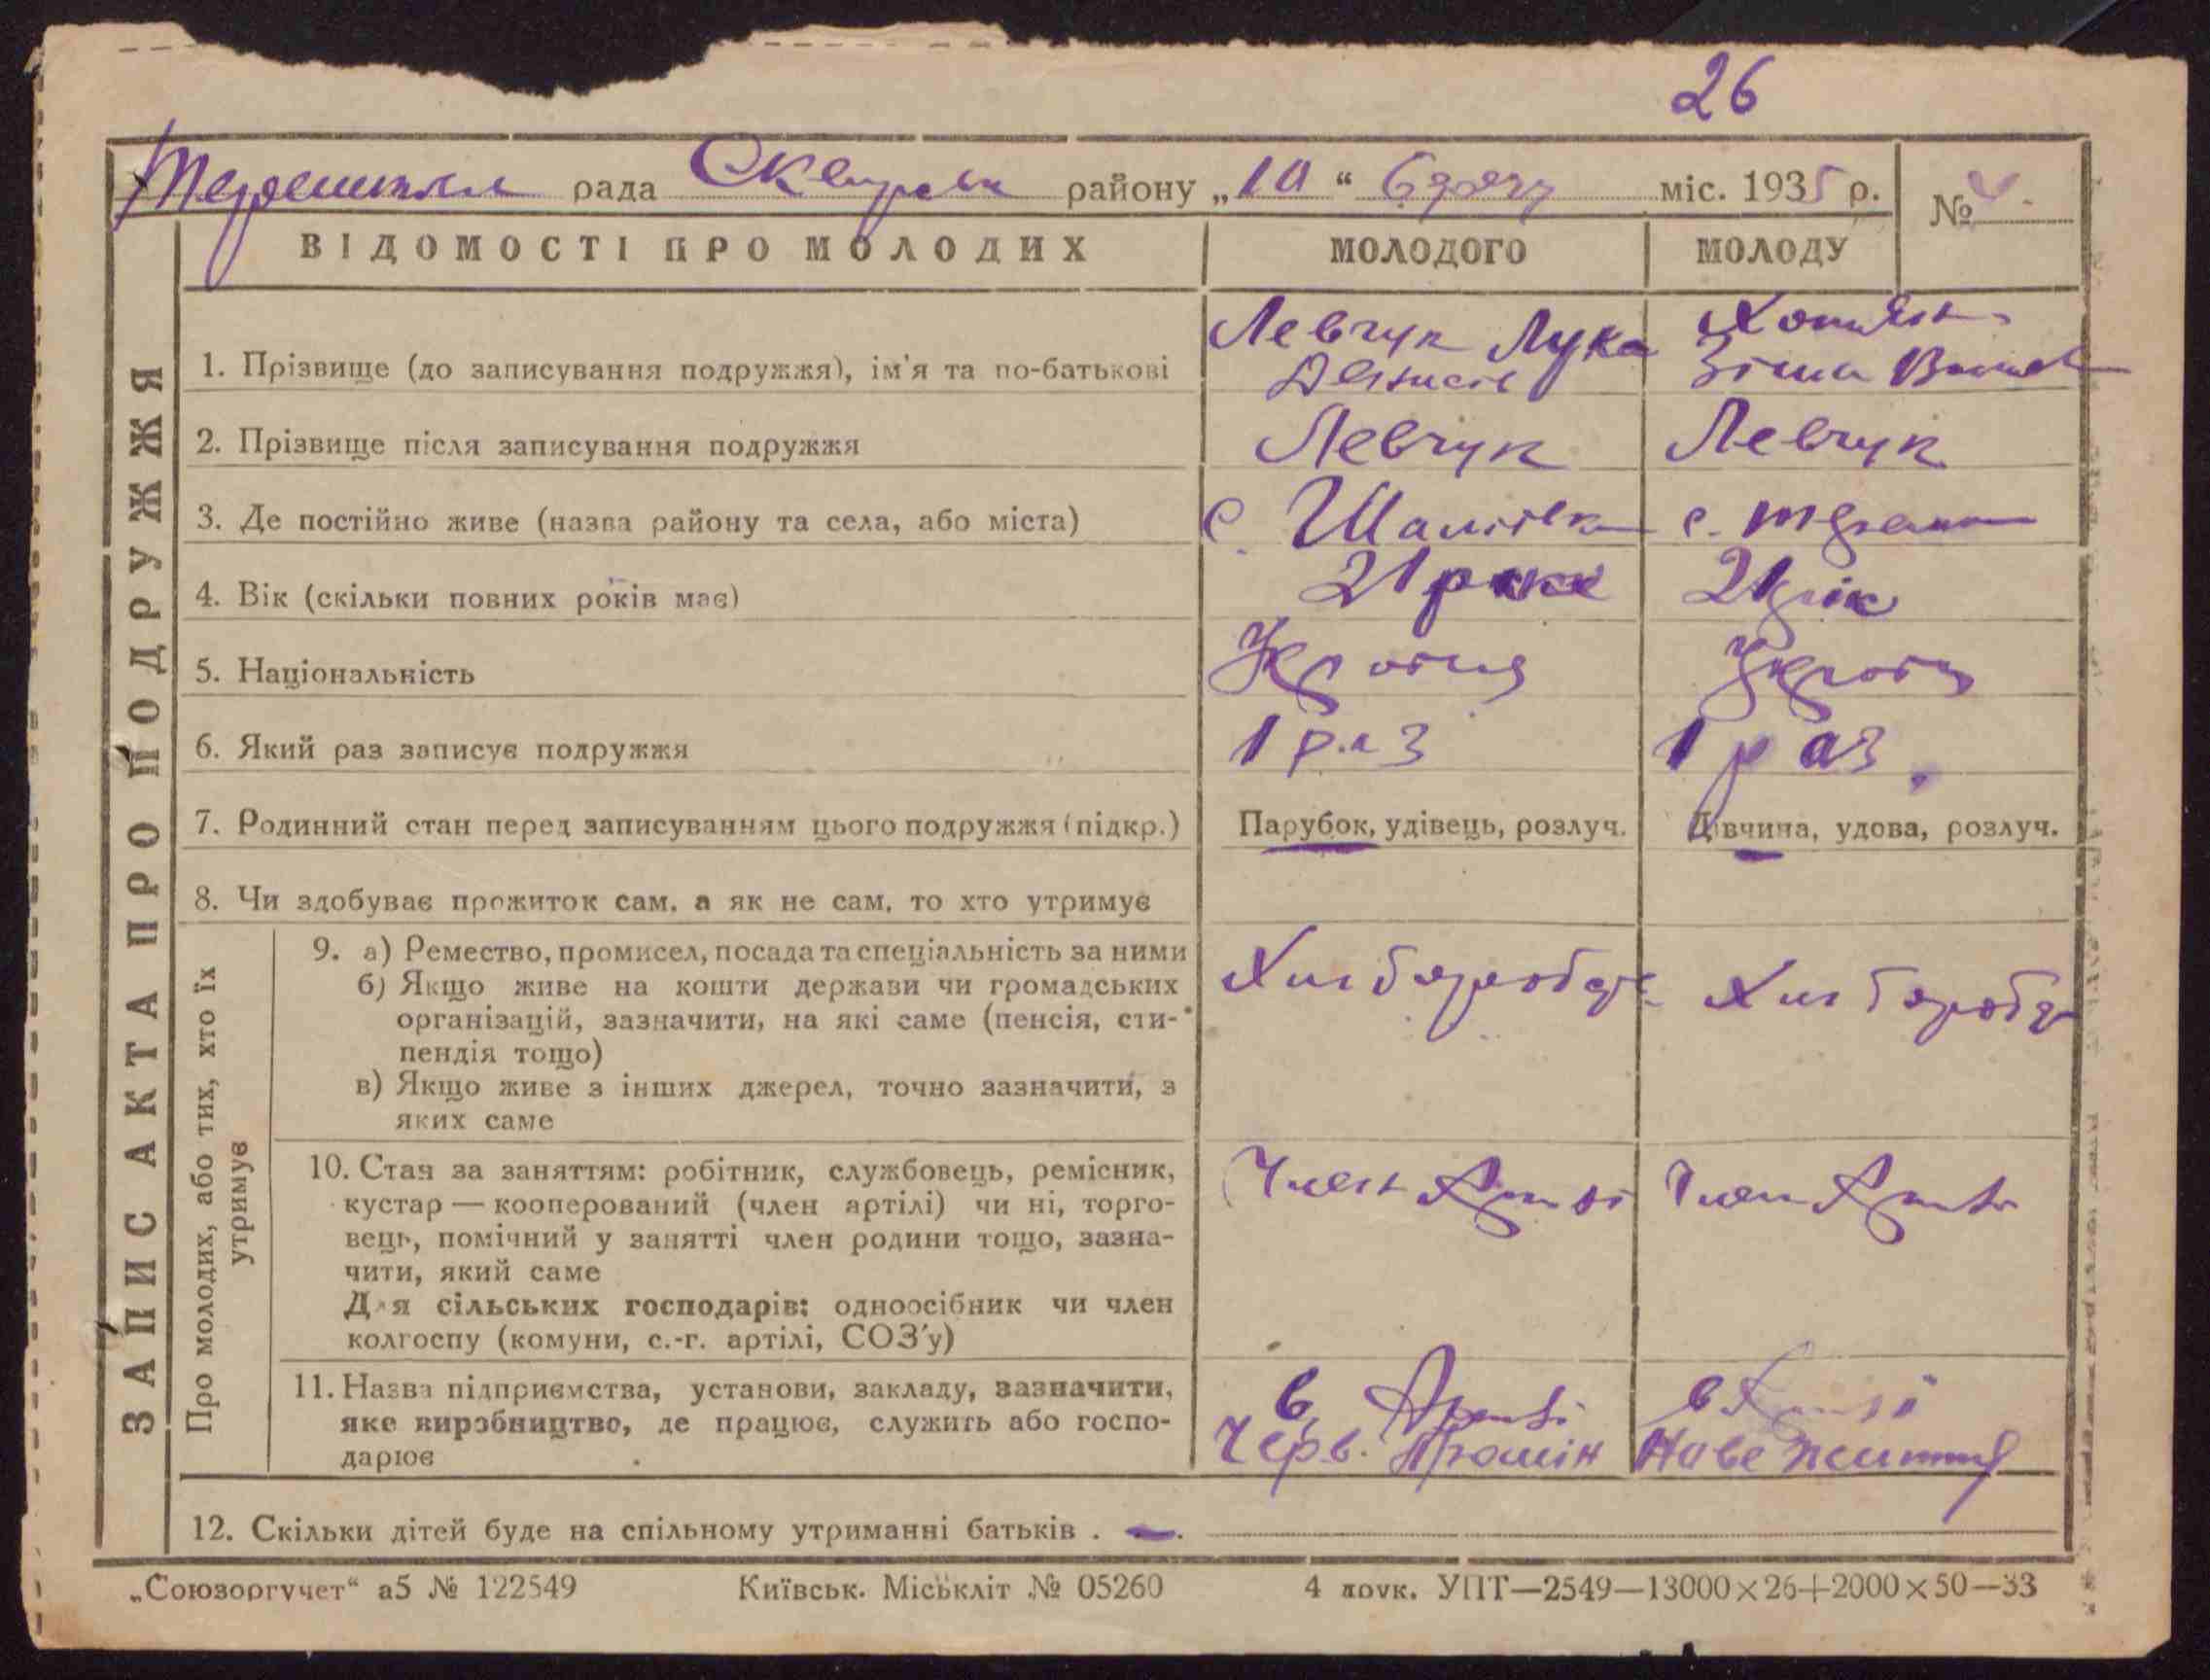 26
рада Сквирськ району „10“ міс. 1935 р.
№ 4.
ВІДОМОСТІ ПРО МОЛОДИХ МОЛОДОГО МОЛОДУ
ЗАПИС АКТА ПРО ПОДРУЖЖЯ
1. Прізвище (до записування подружжя), ім'я та по-батькові Левчук Лука Зіна
2. Прізвище після записування подружжя Левчук Левчук
3. Де постійно живе (назва району та села, або міста) с. с.
4. Вік (скільки повних років має) 21 21 рік
5. Національність
6. Який раз записує подружжя 1 раз 1 раз.
7. Родинний стан перед записуванням цього подружжя (підкр.) Парубок, удівець, розлуч. Дівчина, удова, розлуч.
8. Чи здобуває прожиток сам, а як не сам, то хто утримує
Про молодих, або тих, хто їх
утримує
9. а) Ремество, промисел, посада та спеціальність за ними
б) Якщо живе на кошти держави чи громадських
організацій, зазначити, на які саме (пенсія, сти-
пендія тощо)
в) Якщо живе з інших джерел, точно зазначити, з
яких саме
Хліборобд Хліборобд
10. Стан за заняттям: робітник, службовець, ремісник,
кустар — кооперований (член артілі) чи ні, торго-
вець, помічний у занятті член родини тощо, зазна-
чити, який саме
Для сільських господарів: одноосібник чи член
колгоспу (комуни, с.-г. артілі, СОЗ'у)
Член Артілі Член Артілі
11. Назва підприємства, установи, закладу, зазначити,
яке виробництво, де працює, служить або госпо-
дарює
в Артілі в Артілі
Черв. Промін Нове Життя
12. Скільки дітей буде на спільному утриманні батьків . —.
„Союзоргучет“ а5 № 122549 Київськ. Міськліт № 05260 4 друк. УПТ—2549—13000×26+2000×50—33